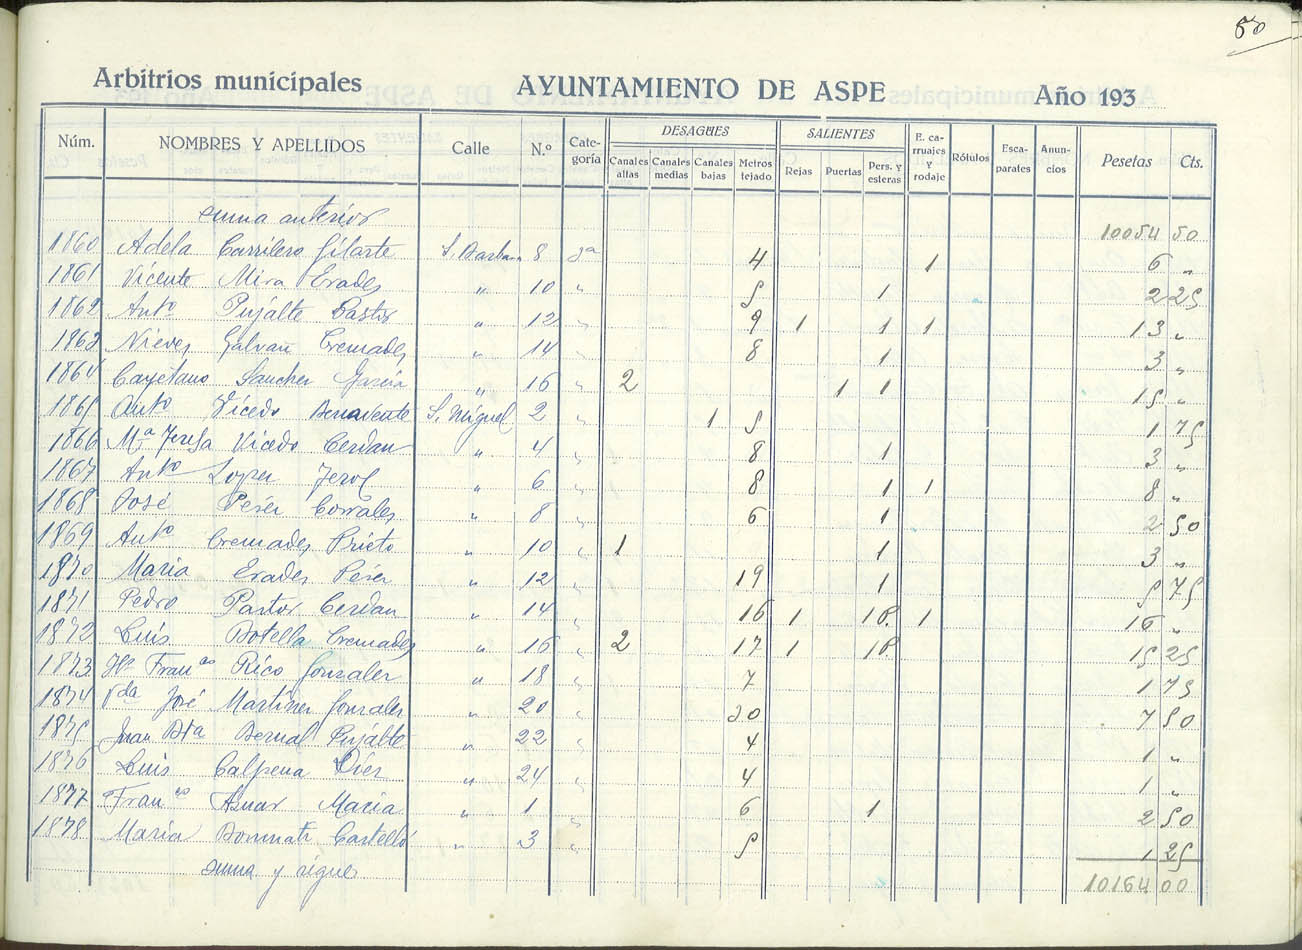 50
Arbitrios municipales AYUNTAMIENTO DE ASPE Año 193
Núm. NOMBRES Y APELLIDOS Calle N.º Cate-goría DESAGÜES Canales altas Canales medias Canales bajas Metros tejado SALIENTES Rejas Puertas Pers. y esteras E. ca-rruajes y rodaje Rótulos Esca-parates Anun-cios Pesetas Cts.
suma anterior 10054 50
1860 Adela Carrilero Gilarte S. Barbara 8 3ª 4 1 6 "
1861 Vicente Mira Erades " 10 " 5 1 2 25
1862 Antº Pujalte Pastor " 12 " 9 1 1 1 13 "
1863 Nieves Galvañ Cremades " 14 " 8 1 3 "
1864 Cayetano Sanchez García " 16 " 2 1 1 15 "
1865 Antº Vicedo Benavente S. Miguel 2 " 1 5 1 75
1866 Mª Teresa Vicedo Cerdan " 4 " 8 1 3 "
1867 Antº Lopez Jerol " 6 " 8 1 1 8 "
1868 José Pérez Corrales " 8 " 6 1 2 50
1869 Antº Cremades Prieto " 10 " 1 1 3 "
1870 Maria Erades Pérez " 12 " 19 1 5 75
1871 Pedro Pastor Cerdan " 14 " 16 1 1P. 1 16 "
1872 Luis Botella Cremades " 16 " 2 17 1 1P. 15 25
1873 Hº Francº Rico Gonzalez " 18 " 7 1 75
1874 Vda José Martínez Gonzalez " 20 " 30 7 50
1875 Juan Bta Bernal Pujalte " 22 " 4 1 "
1876 Luis Calpena Díez " 24 " 4 1 "
1877 Francº Aznar Macia " 1 " 6 1 2 50
1878 Maria Bonmatí Castelló " 3 " 5 1 25
suma y sigue 10164 00